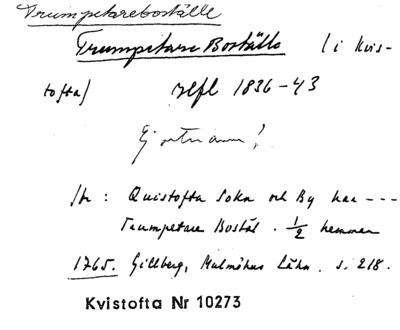 Trumpetareboställe
Trumpetare Boställe (i Kvis-
tofta) Hfl 1836-43
Ej ortnamn!
Quistofta Sokn och By har ---
Trumpetare Bostäl. ½ hemman
1765. Gillberg, Malmöhus Lähn. s. 218.
Kvistofta Nr 10273